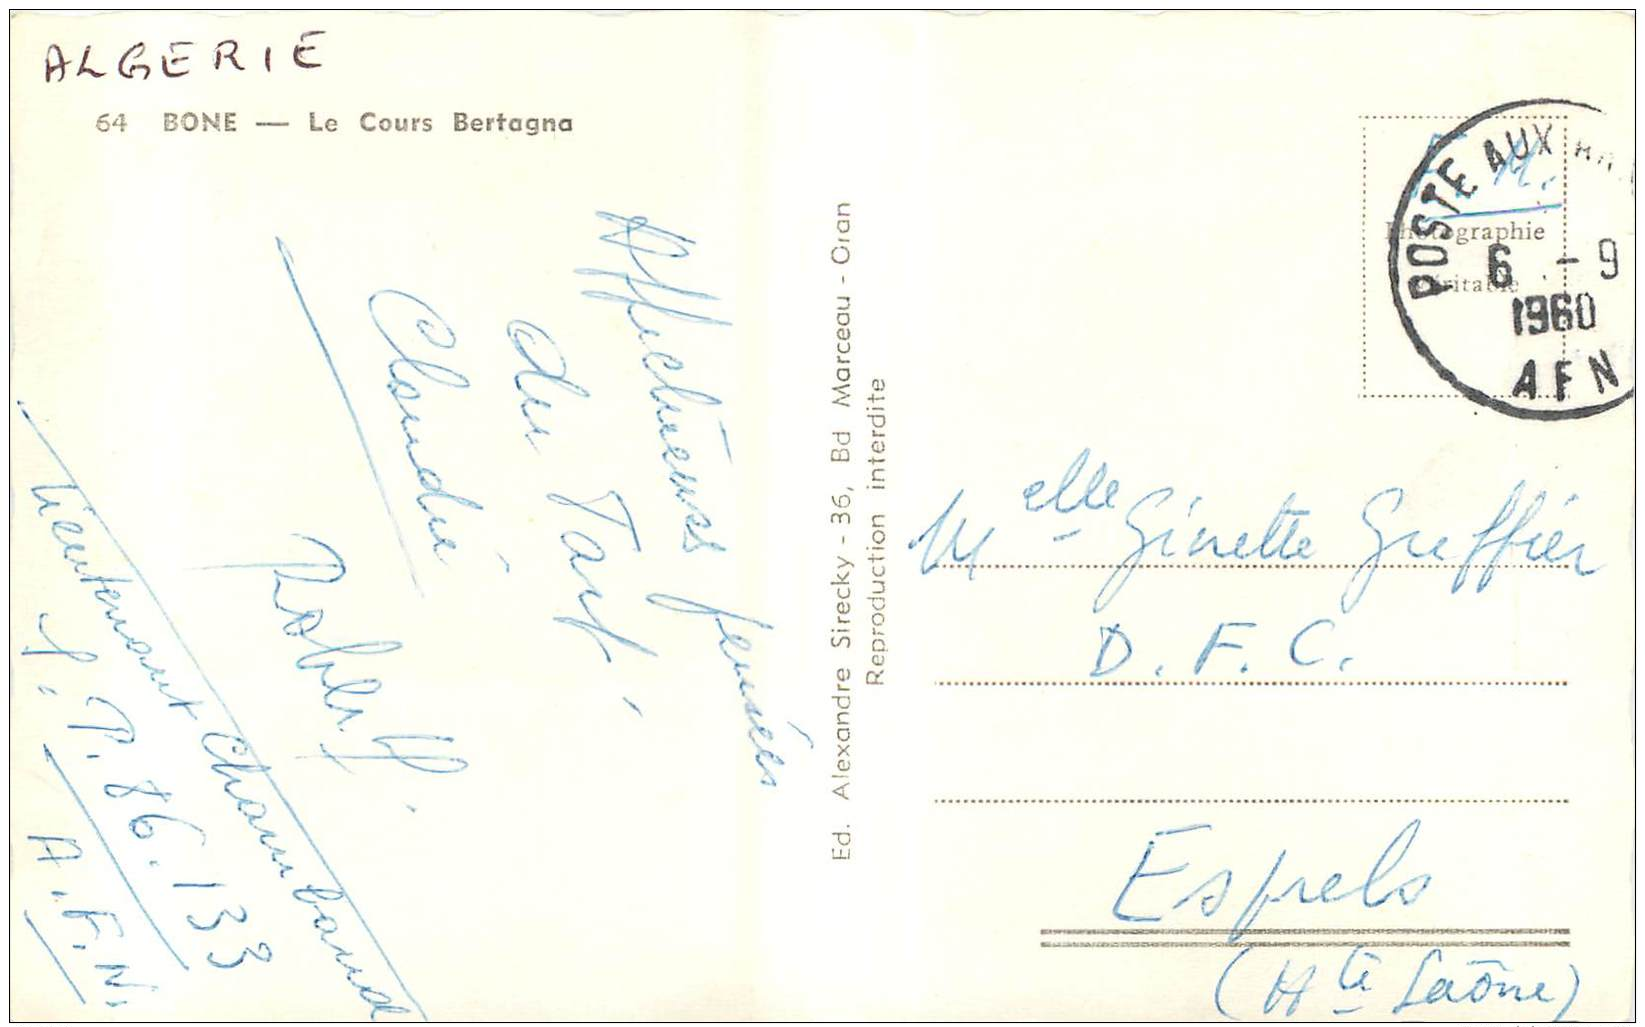 ALGERIE
64 BONE — Le Cours Bertagna
Affectueuses pensées
du Tart.
Claudié
Lieutenant Chambaud
S. P. 86.133
A.F.N.
Ed. Alexandre Sirecky - 36, Bd Marceau - Oran
Reproduction interdite
F. M.
Photographie
Véritable
POSTE AUX
6 - 9
1960
AFN
Melle Ginette Greffier
D. F. C.
Esprels
(Hte Saône)